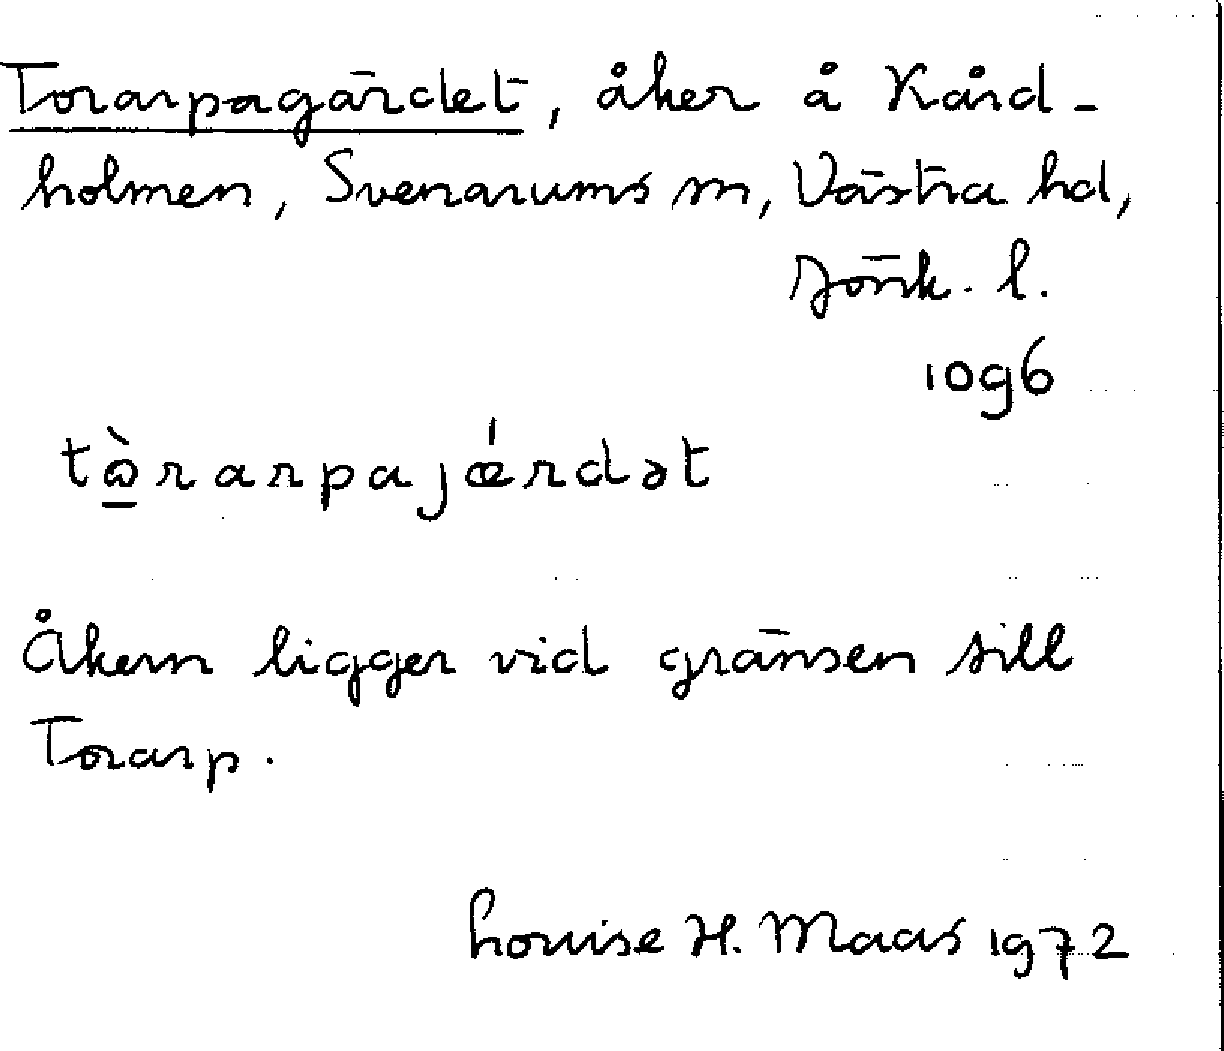 Torarpagärdet, åker å Kård-
holmen, Svenarums sn, Västra hd,
Jönk. l.
1096
tὼ̲rarpajǽrdət
Åkern ligger vid gränsen till
Torarp.
Louise H. Maas 1972